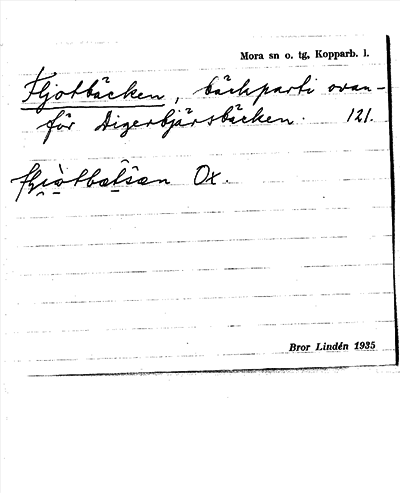 Mora sn o. tg, Kopparb. l.
Fljotbäcken, bäckparti ovan-
för Digerbjärsbäcken. 121.
Ox.
Bror Lindén 1935